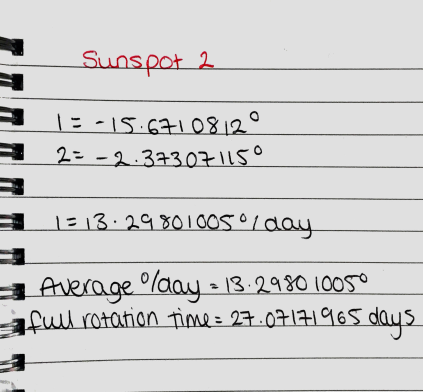 Sunspot 2
1 = -15.6710812°
2 = -2.37307115°
1 = 13.29801005°/day
Average °/day = 13.29801005°
full rotation time = 27.07171965 days